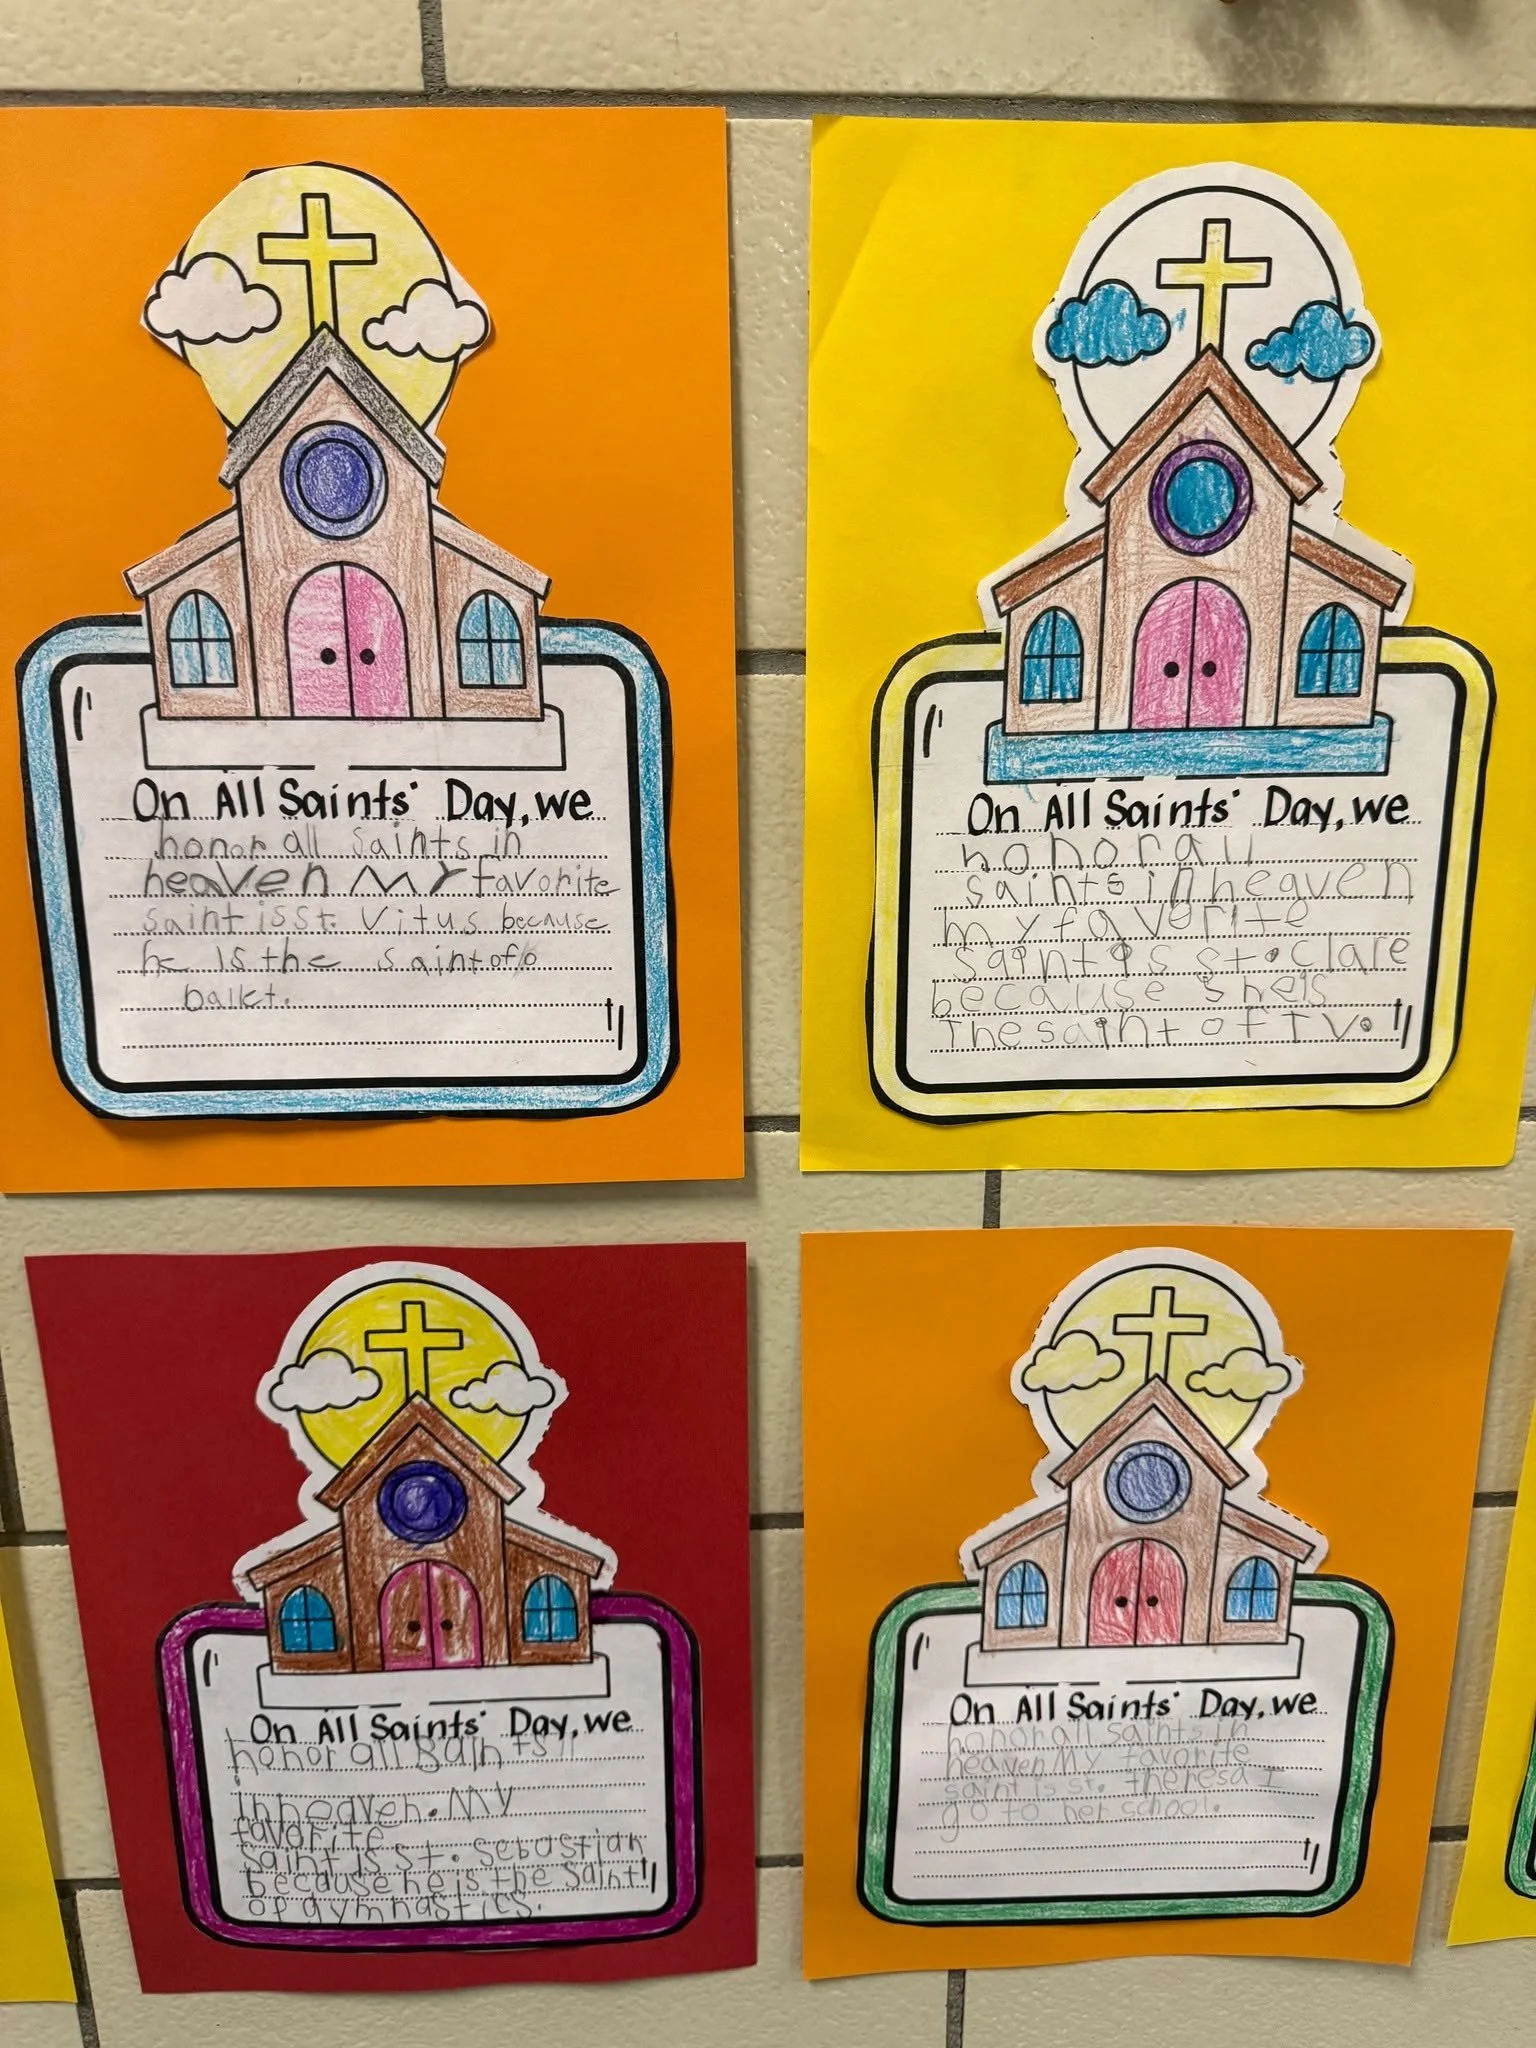 On All Saints' Day, we
honor all saints in
heaven My favorite
saint is st. Vitus because
he is the saint of
ballet.
On All Saints' Day, we
honor all
saints in heaven
my favorite
saint is st. Clare
because she is
The saint of TV.
On All Saints' Day, we
honor all saints
in heaven. My
favorite
saint is st. Sebastian
because he is the saint
of gymnastics.
On All Saints' Day, we
honor all saints in
heaven My favorite
saint is st. theresa I
go to her school.